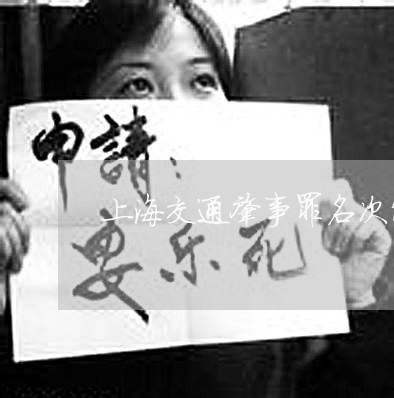 申請：
上海交通肇事罪名次
安乐死